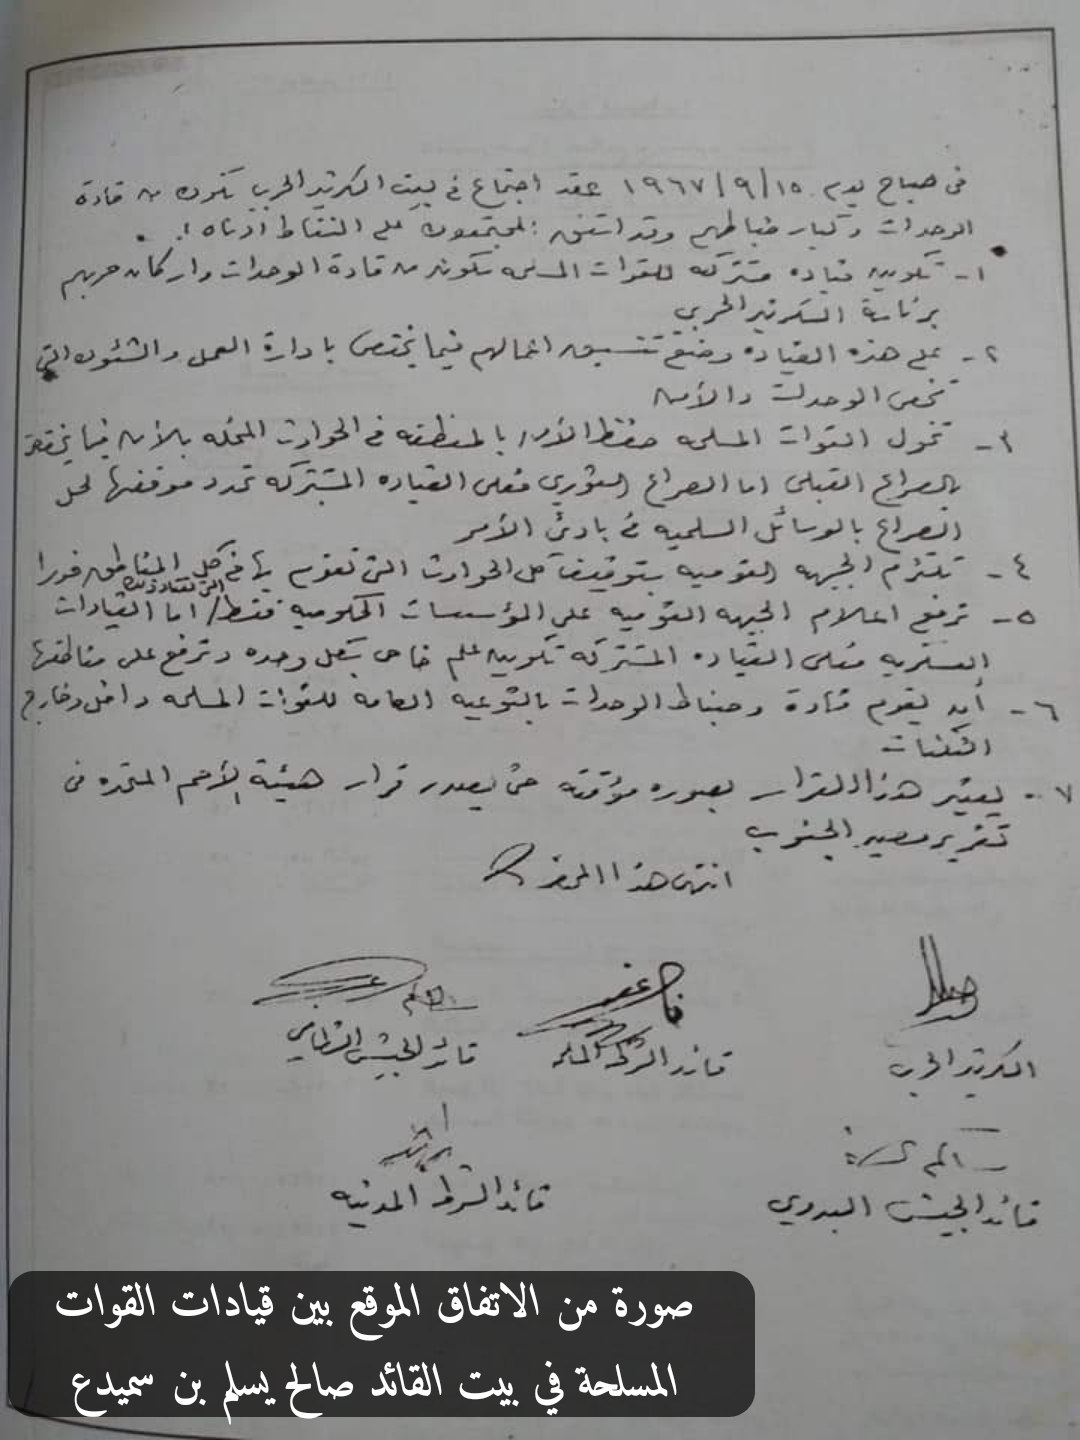 في صباح يوم ١٩٦٧/٩/١٥ عقد اجتماع في بيت السكرتير الحربي تكون من قادة
الوحدات وكبار ضباطهم وقد اتفق المجتمعون على النقاط ادناه :.
١- تكوين قياده مشتركه للقوات المسلحه تتكون من قادة الوحدات واركان حربهم
برئاسة السكرتير الحربي
٢- على هذه القياده وضع تنسيق اعمالهم فيما يختص بادارة العمل والشئون التي
تخص الوحدات والأمن
٣- تخول القوات المسلحه حفظ الأمن بالمنطقه في الحوادث المخله بالأمن فيما يختص
بالصراع القبلي اما الصراع الثوري فعلى القياده المشتركه تحدد موقفها لحل
الصراع بالوسائل السلميه في بادئ الأمر
٤- تلتزم الجبهه القوميه بتوقيف كل الحوادث التي تقوم بها في كل المناطق فورا
٥- ترفع اعلام الجبهه القوميه على المؤسسات الحكوميه فقط / اما القيادات
العسكريه فعلى القياده المشتركه تكوين علم خاص بكل وحده وترفع على مناطقها
٦- أن يقوم قادة وضباط الوحدات بالتوعيه العامه للقوات المسلحه داخل وخارج
الثكنات
٧- يعتبر هذا القرار بصوره مؤقته حتى يصدر قرار هيئة الأمم المتحده في
تقرير مصير الجنوب
انتهى هذا المحضر
السكرتير الحربي
قائد الشرطه المسلحه
قائد الجيش النظامي
قائد الجيش البدوي
قائد الشرطه المدنيه
صورة من الاتفاق الموقع بين قيادات القوات
المسلحة في بيت القائد صالح يسلم بن سميدع